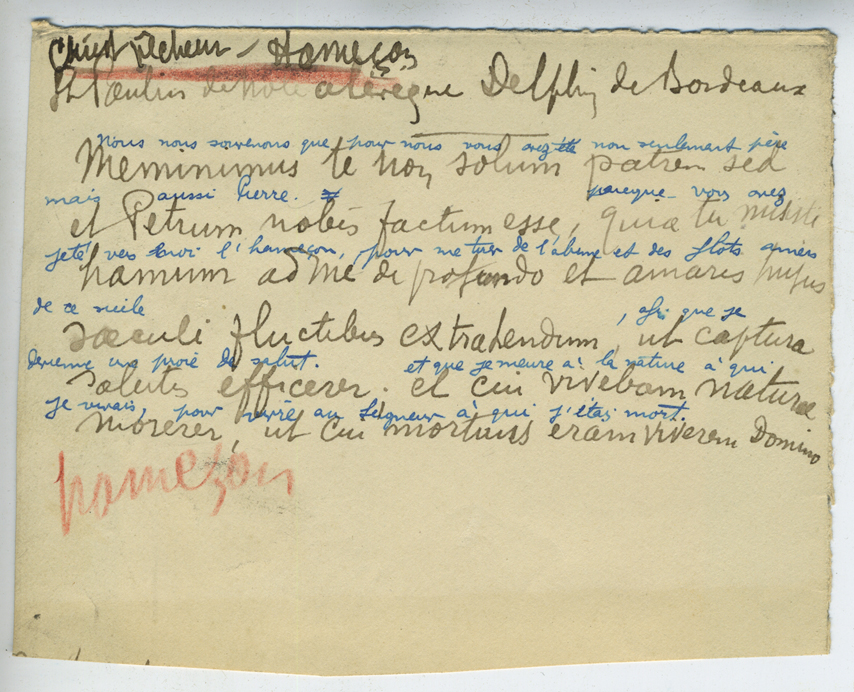 Christ Pêcheur - Hameçon
St Paulin de Nole à l'évêque Delphin de Bordeaux
Nous nous souvenons que pour nous vous avez été non seulement père
Meminimus te non solum patrem sed
mais aussi Pierre. parceque vous avez
et Petrum nobis factum esse, quia tu misisti
jeté vers moi l'hameçon, pour me tirer de l'abîme et des flots amers
hamum ad me de profundo et amaris hujus
de ce siècle, afin que je
saeculi fluctibus extrahendum, ut captura
devienne une proie de salut. et que je meure à la nature à qui
salutis efficerer. et cui vivebam naturae
je vivais, pour vivre au Seigneur à qui j'étais mort.
morerer, ut cui mortuus eram viverem Domino
hameçon